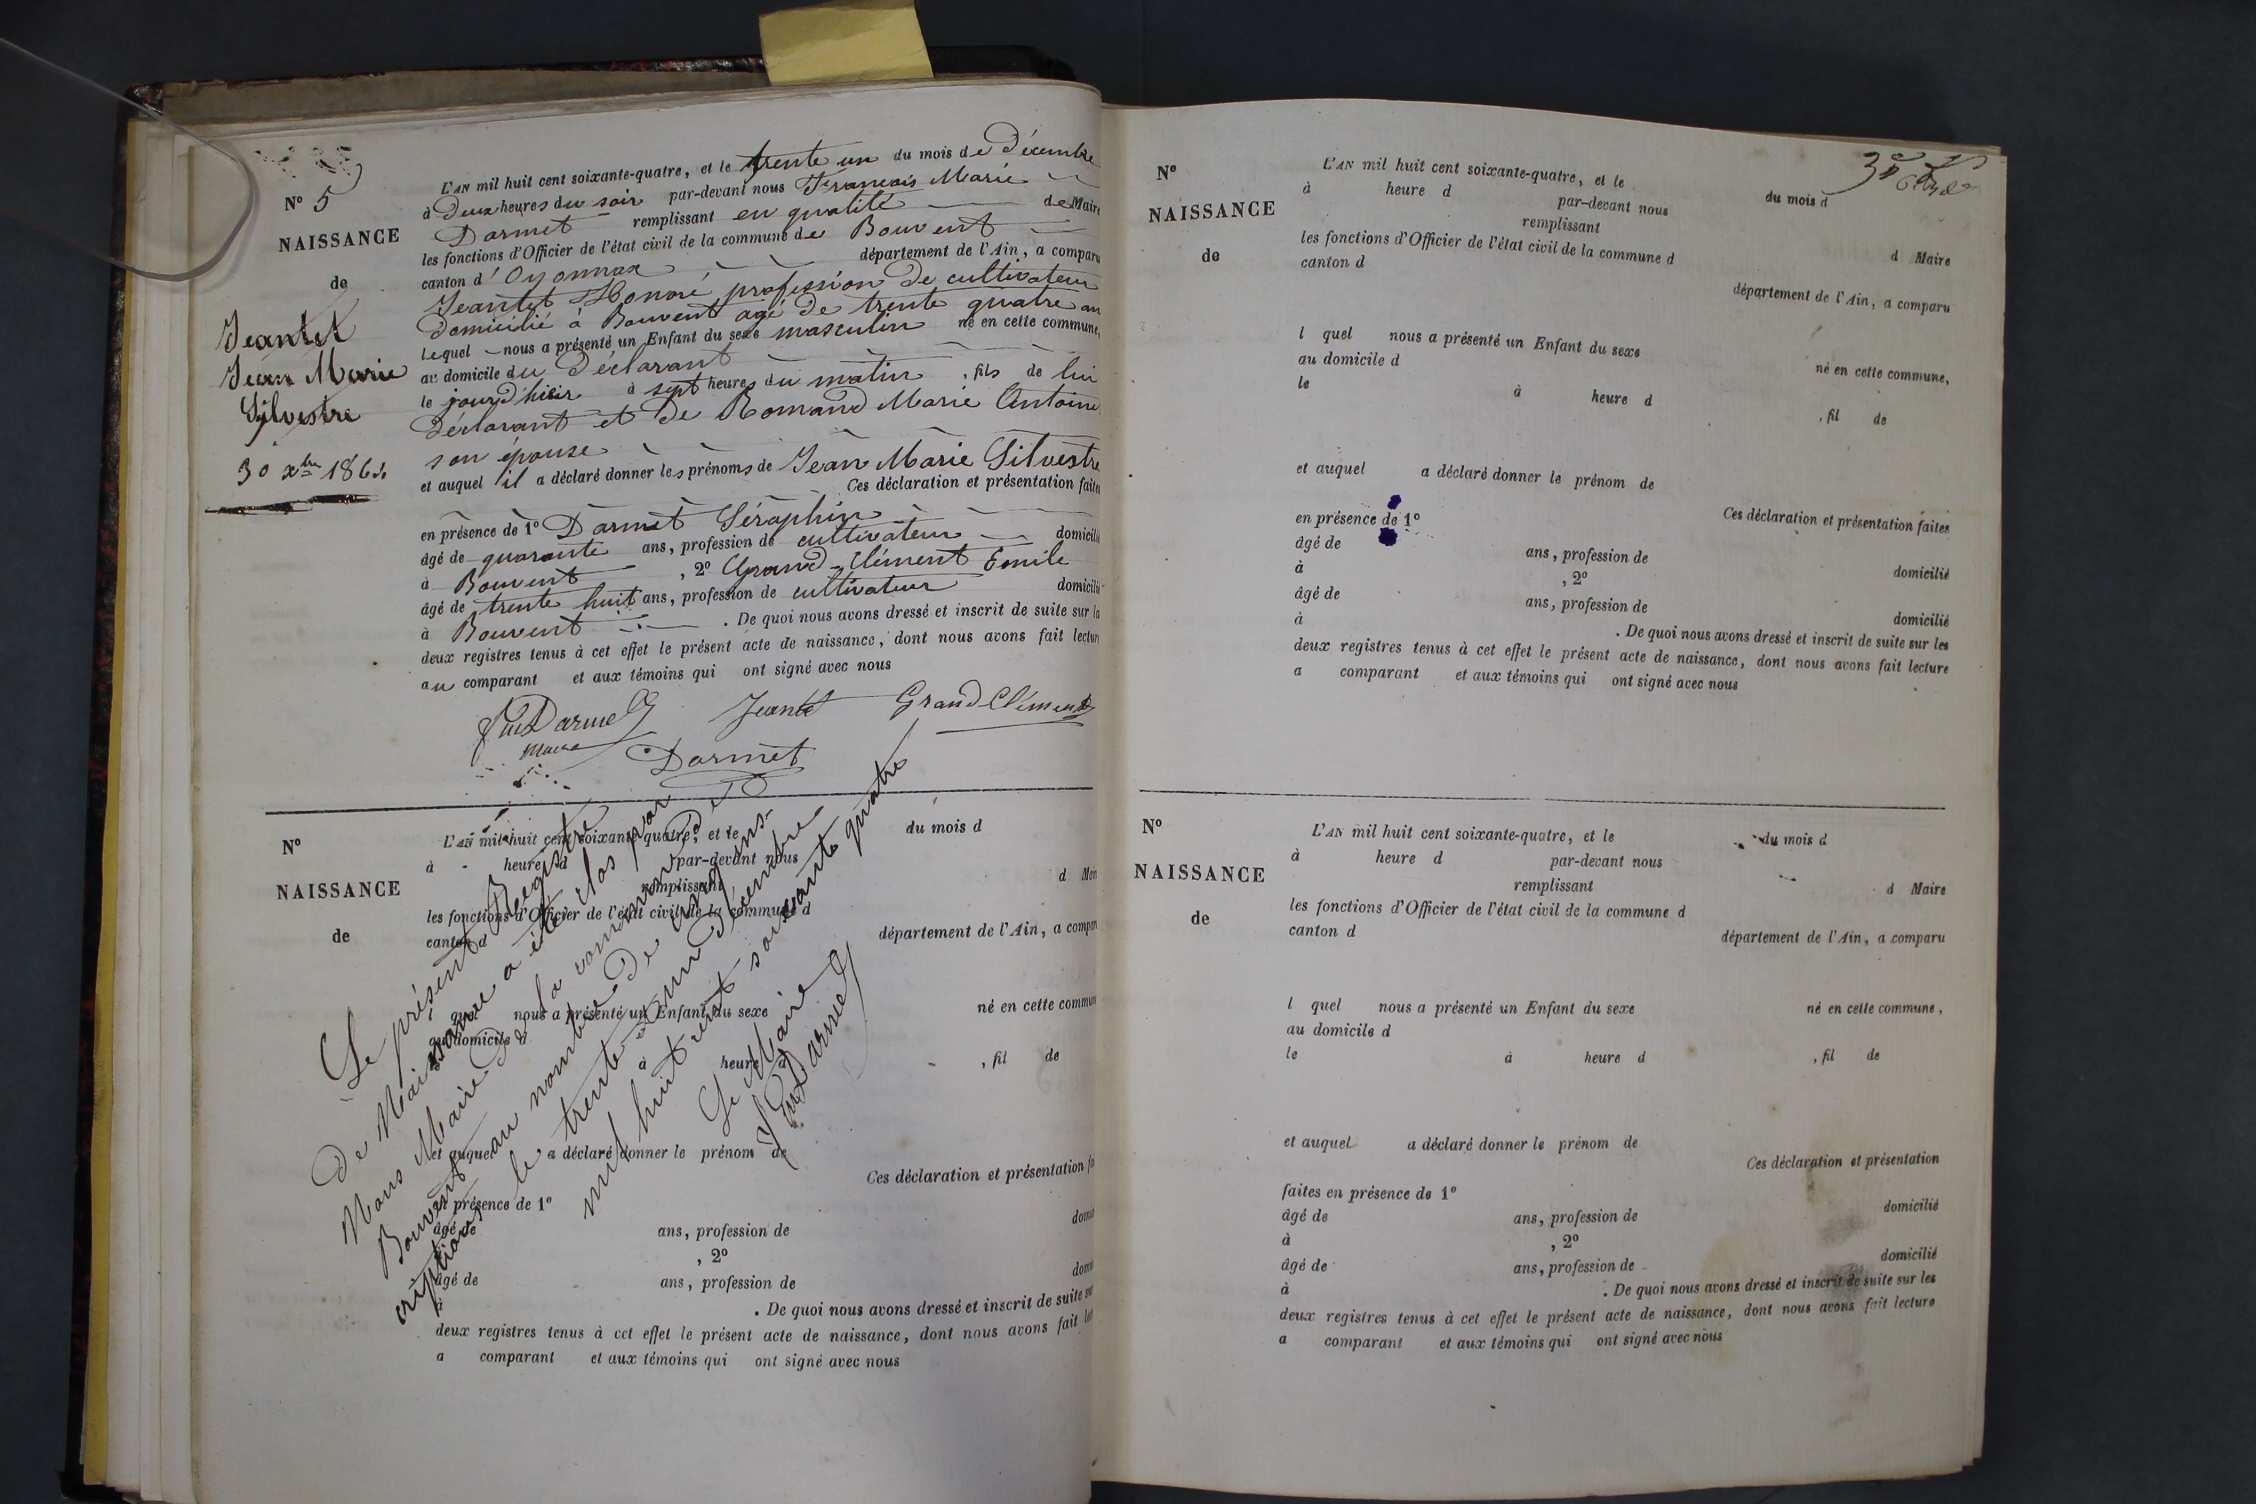 N° 5
NAISSANCE
de
Jeantet
Jean Marie
Sylvestre
30 xbre 1864
L'AN mil huit cent soixante-quatre, et le trente un du mois de Décembre
à Deux heures du soir par-devant nous François Marie
Darmet remplissant en qualité de Maire
les fonctions d'Officier de l'état civil de la commune de Bouvent
canton d'Oyonnax département de l'Ain, a comparu
Jeantet Honoré profession de cultivateur
domicilié à Bouvent âgé de trente quatre an
lequel nous a présenté un Enfant du sexe masculin né en cette commune,
au domicile du Déclarant
le jour d'hier à sept heures du matin, fils de lui
déclarant et de Romand Marie Antoine
son épouse
et auquel il a déclaré donner les prénoms de Jean Marie Silvestre
Ces déclaration et présentation faites
en présence de 1° Darmet Séraphin
âgé de quarante ans, profession de cultivateur domicilié
à Bouvent, 2° Grand-Clément Emile
âgé de trente huit ans, profession de cultivateur domicilié
à Bouvent. De quoi nous avons dressé et inscrit de suite sur le
deux registres tenus à cet effet le présent acte de naissance, dont nous avons fait lecture
au comparant et aux témoins qui ont signé avec nous
Darmet Jeantet Grand Clément
Maire
Darmet
N°
NAISSANCE
de
L'AN mil huit cent soixante-quatre, et le du mois d
à heure d par-devant nous
remplissant d Mair
les fonctions d'Officier de l'état civil de la commune d
canton d département de l'Ain, a compar
quel nous a présenté un Enfant du sexe né en cette commun
au domicile d
à heure d, fil de
et auquel a déclaré donner le prénom de
Ces déclaration et présentation fa
en présence de 1°
âgé de ans, profession de domi
, 2°
âgé de ans, profession de domi
à . De quoi nous avons dressé et inscrit de suite sur
deux registres tenus à cet effet le présent acte de naissance, dont nous avons fait lec
a comparant et aux témoins qui ont signé avec nous
Le présent Registre
de Naissance a été clos par
Nous Maire de la commune de
Bouvent au nombre de cinq ins-
criptions le trente un Décembre
mil huit cent soixante quatre
Le Maire
Darmet
N°
NAISSANCE
de
L'AN mil huit cent soixante-quatre, et le du mois d
à heure d par-devant nous
remplissant d Maire
les fonctions d'Officier de l'état civil de la commune d
canton d département de l'Ain, a comparu
l quel nous a présenté un Enfant du sexe né en cette commune,
au domicile d
le à heure d, fil de
et auquel a déclaré donner le prénom de
Ces déclaration et présentation faites
en présence de 1°
âgé de ans, profession de domicilié
à , 2°
âgé de ans, profession de domicilié
à . De quoi nous avons dressé et inscrit de suite sur les
deux registres tenus à cet effet le présent acte de naissance, dont nous avons fait lecture
a comparant et aux témoins qui ont signé avec nous
N°
NAISSANCE
de
L'AN mil huit cent soixante-quatre, et le du mois d
à heure d par-devant nous
remplissant d Maire
les fonctions d'Officier de l'état civil de la commune d
canton d département de l'Ain, a comparu
l quel nous a présenté un Enfant du sexe né en cette commune,
au domicile d
le à heure d, fil de
et auquel a déclaré donner le prénom de
Ces déclaration et présentation
faites en présence de 1°
âgé de ans, profession de domicilié
à , 2°
âgé de ans, profession de domicilié
à . De quoi nous avons dressé et inscrit de suite sur les
deux registres tenus à cet effet le présent acte de naissance, dont nous avons fait lecture
a comparant et aux témoins qui ont signé avec nous